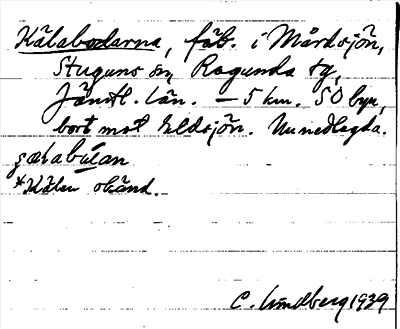 Kälabodarna, fäb. i Mårdsjön,
Stuguns sn, Ragunda tg,
Jämtl. län. – 5 km. SO byn,
bort mot Eldsjön. Nu nedlagda.
*Kälen okänd.
C. Lindberg 1939